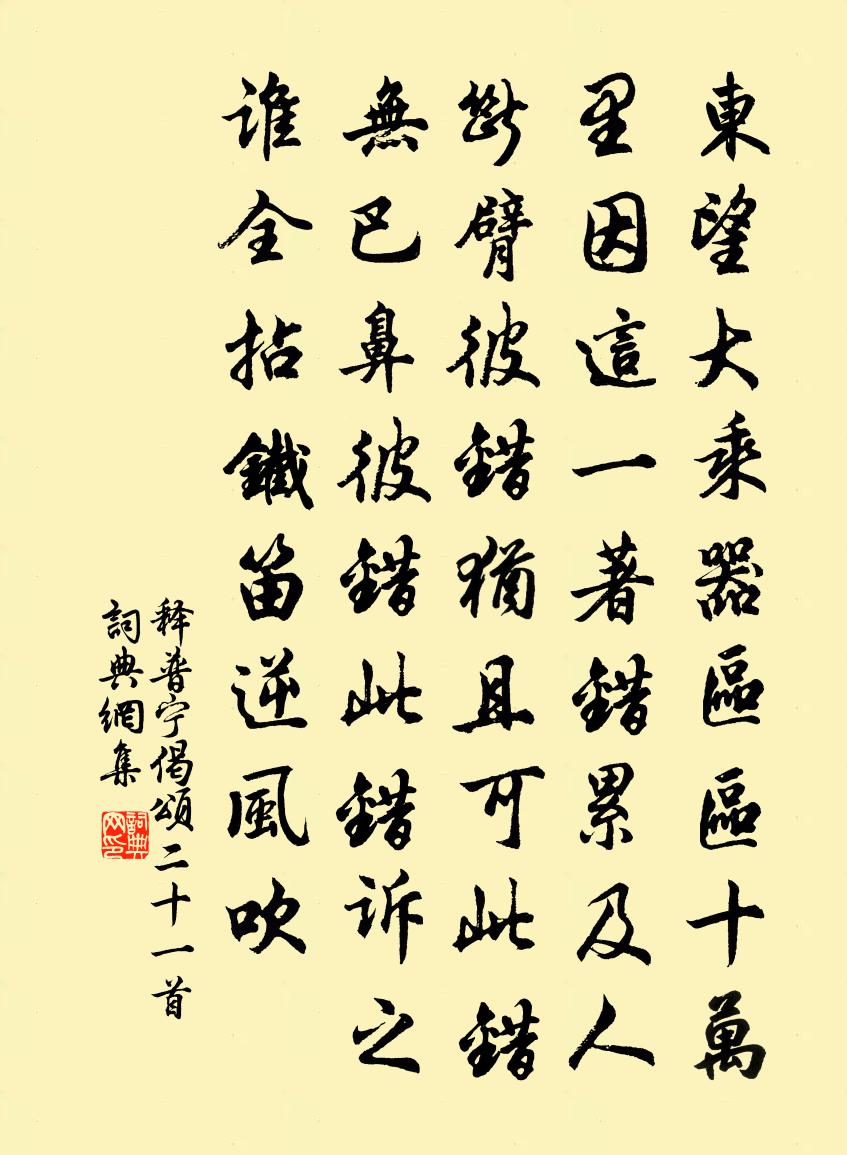 東望大乘器區區十萬
里因這一著錯累及人
斷臂彼錯猶且可此錯
無巴鼻彼錯此錯诉之
誰全拈鐵笛逆風吹
释普宁偈颂二十一首
詞典網集
詞典網印